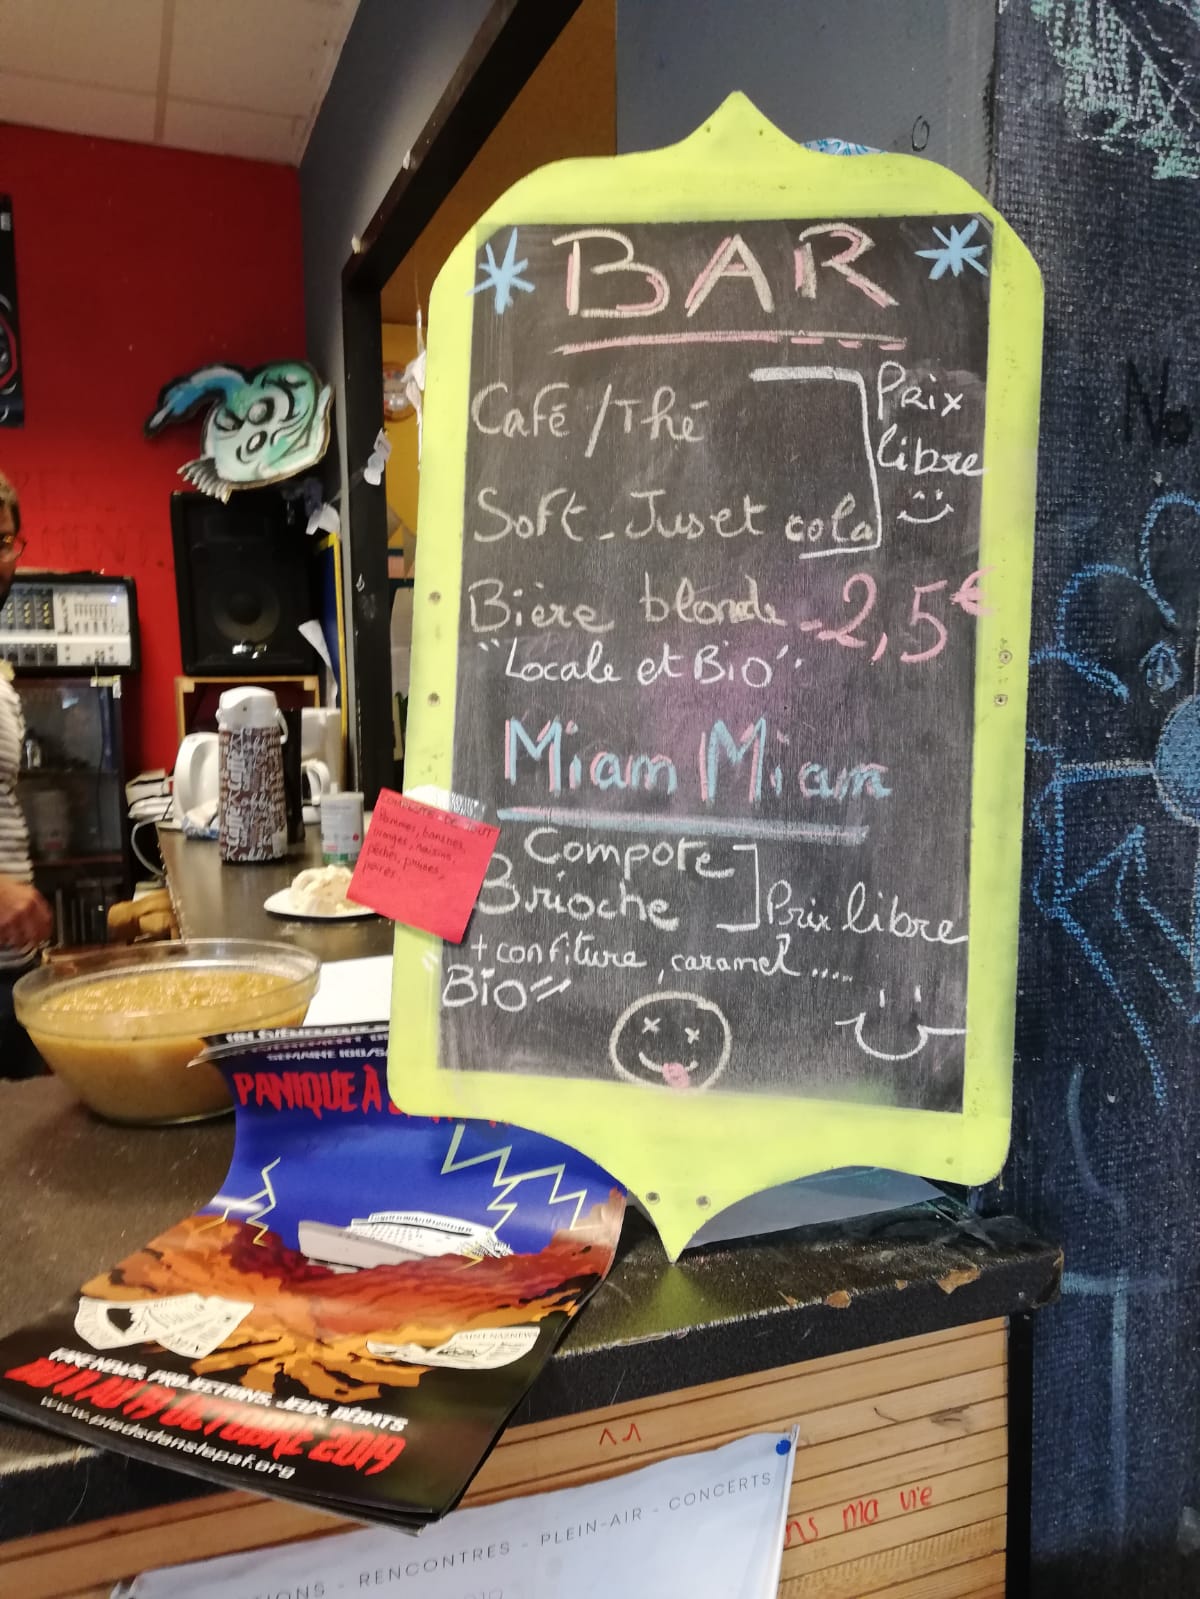 BAR
Café / Thé
Prix
libre
Soft - Jus et cola
Bière blonde - 2,5€
"Locale et Bio"
Miam Miam
Compote
Brioche
Prix libre
+ confiture, caramel.....
Bio
COMPOTE DE TOUT
Pommes, bananes,
oranges, raisins,
pêches, prunes,
poires.
SEMAINE
PANIQUE À
SAINT-NAZNEWS
FAKE NEWS, PROJECTIONS, JEUX, DÉBATS
DU 11 AU 19 OCTOBRE 2019
www.piedsdanslepaf.org
TIONS - RENCONTRES - PLEIN-AIR - CONCERTS
ns ma vie